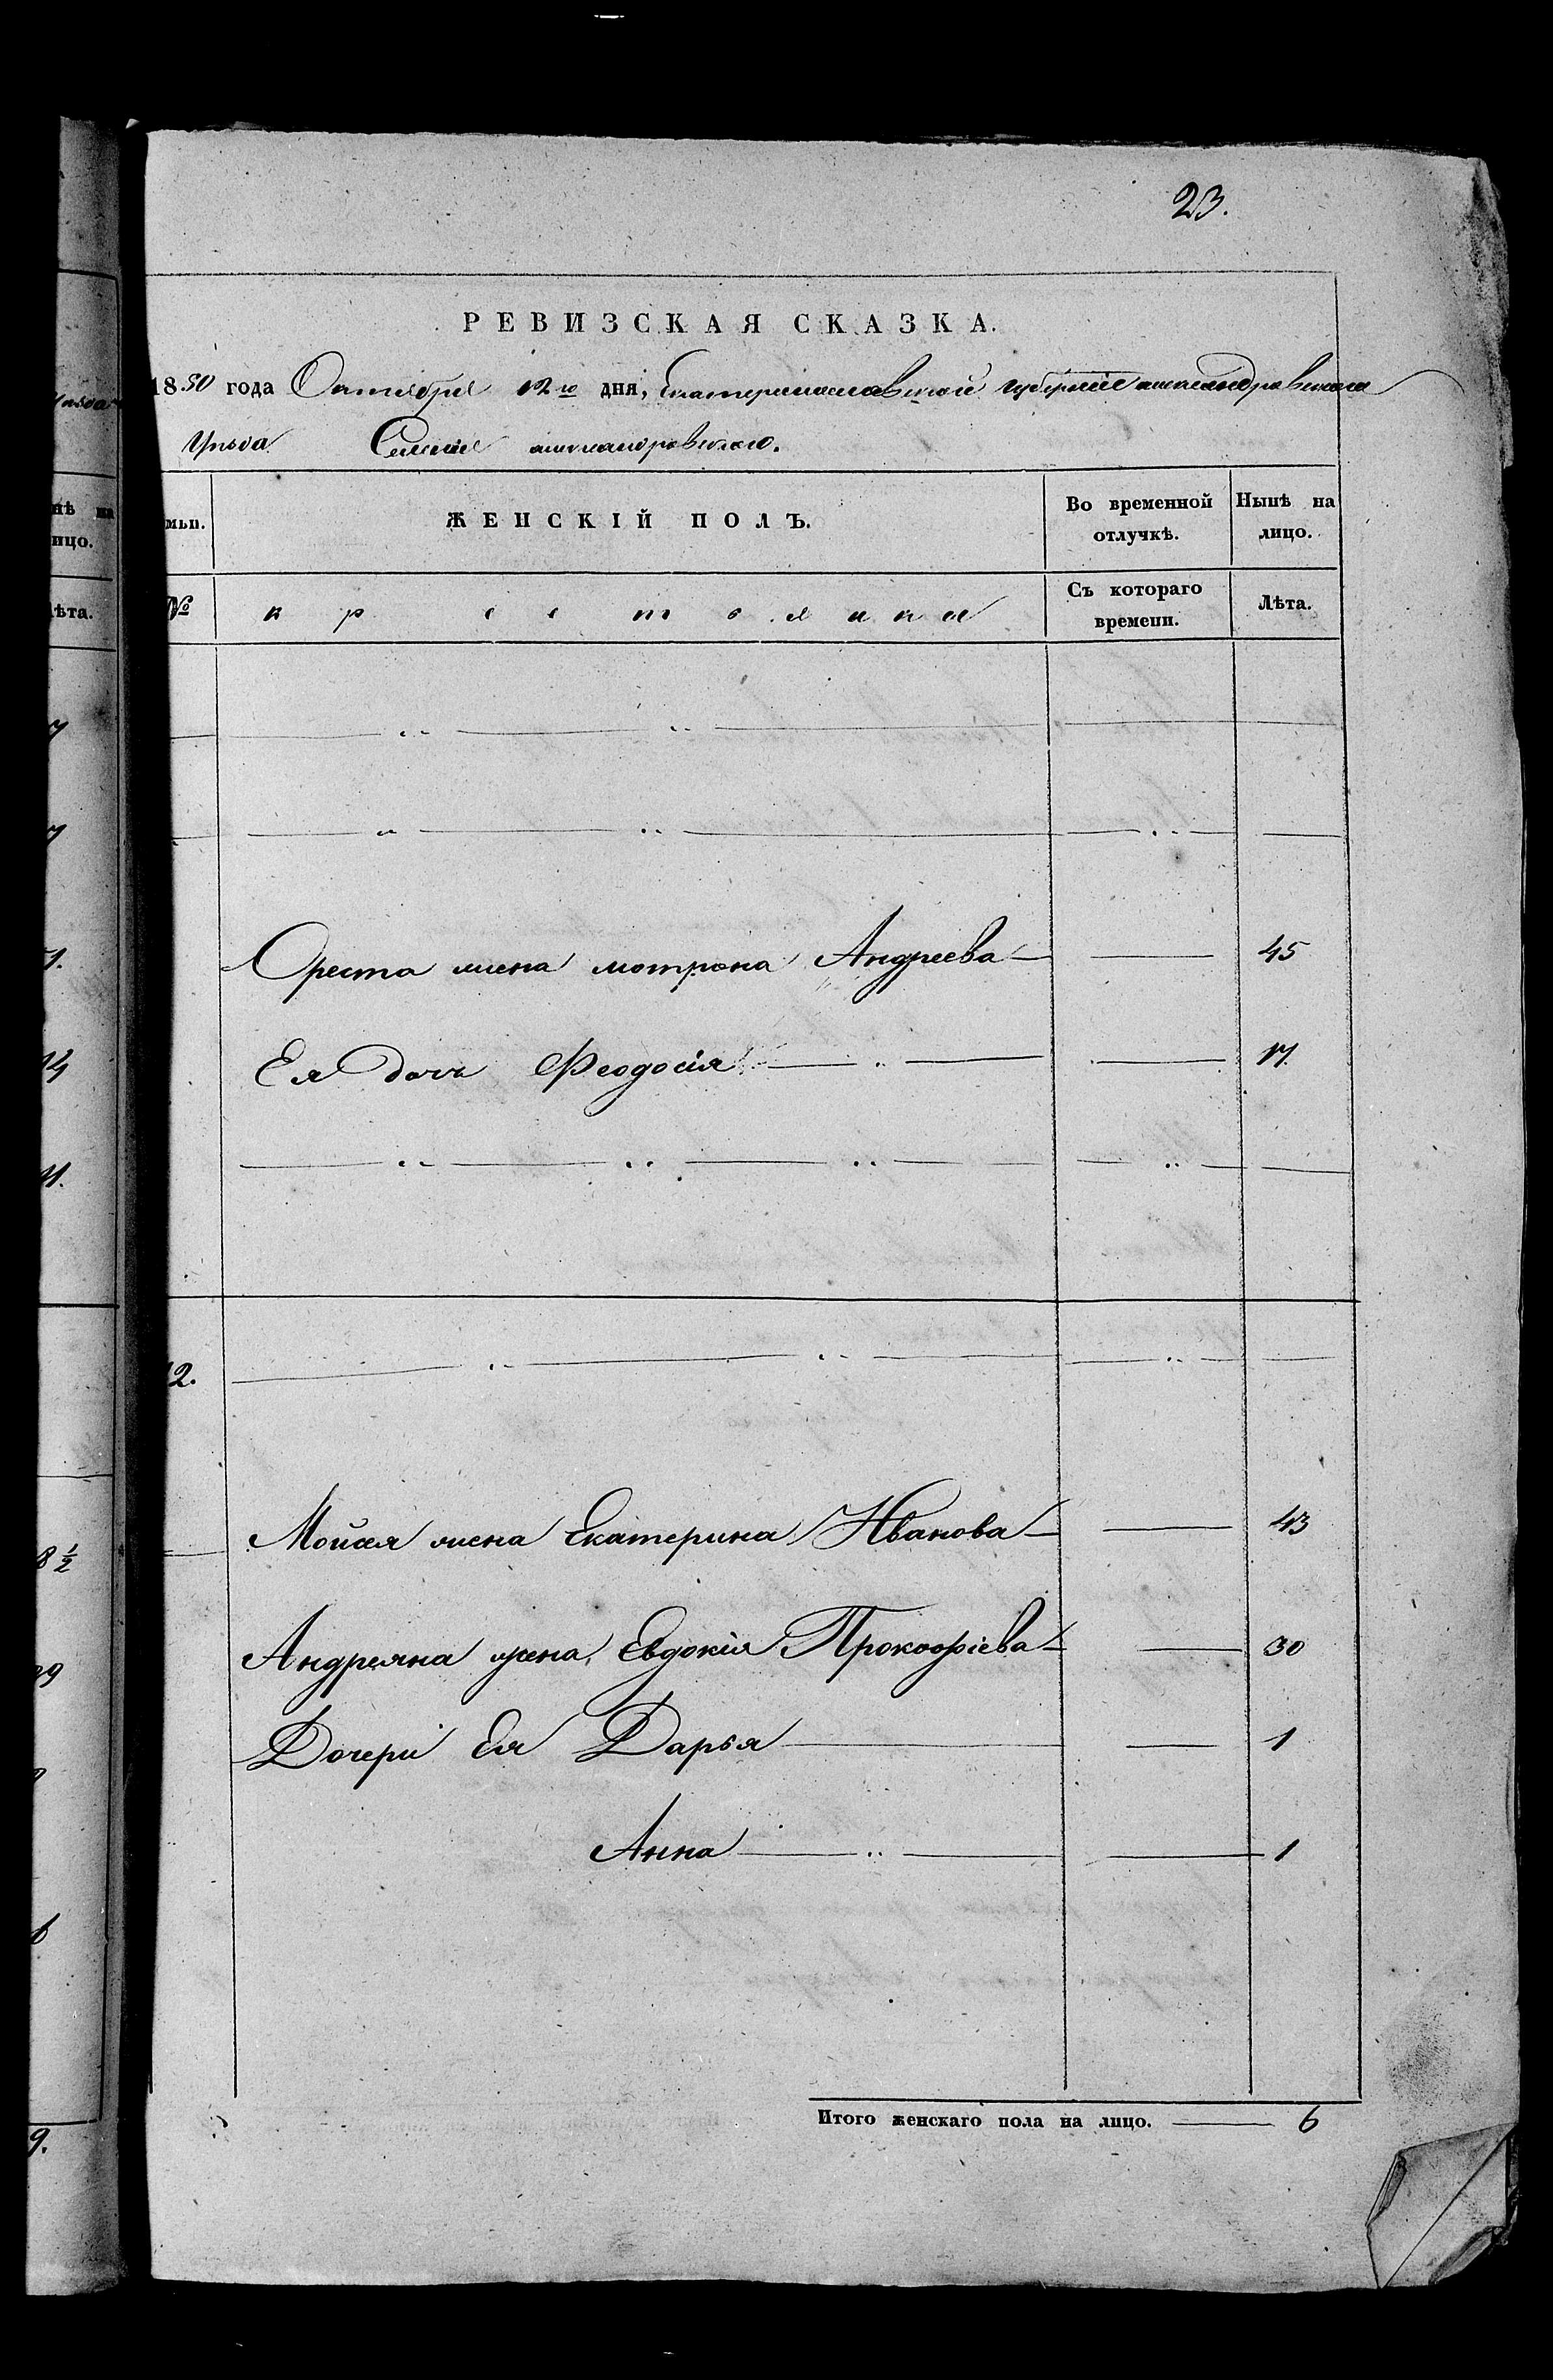 23.
РЕВИЗСКАЯ СКАЗКА.
1850 года Октября 12го дня, Екатеринославской губерніи александровскаго
Уѣзда Селенія александровскаго.
мьи. ЖЕНСКІЙ ПОЛЪ. Во временной отлучкѣ. Нынѣ на лицо.
№ крестьянки Съ котораго времени. Лѣта.
Ореста жена мотрона Андреева 45
Ея дочь Феодосія 17.
12.
Мойсея жена Екатерина Иванова 43
Андреяна жена Евдокія Прокофіева 30
Дочери Ея Дарья 1
Анна 1
Итого женскаго пола на лицо. 6